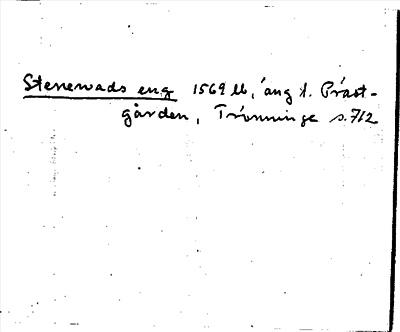 Stenewads eng 1569 lb, äng t. Präst-
gården, Trönninge s. 712